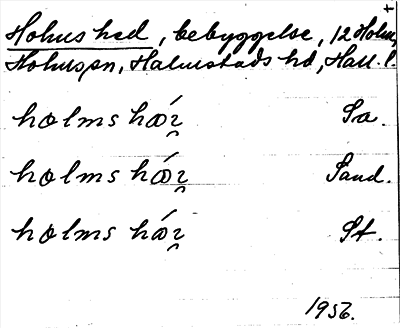 Holms hed, bebyggelse, 12 Holm,
Holms sn, Halmstads hd, Hall. l.
holms hǿꝛ Sa.
holms hǿꝛ Sand.
holms hǿꝛ St.
1956.